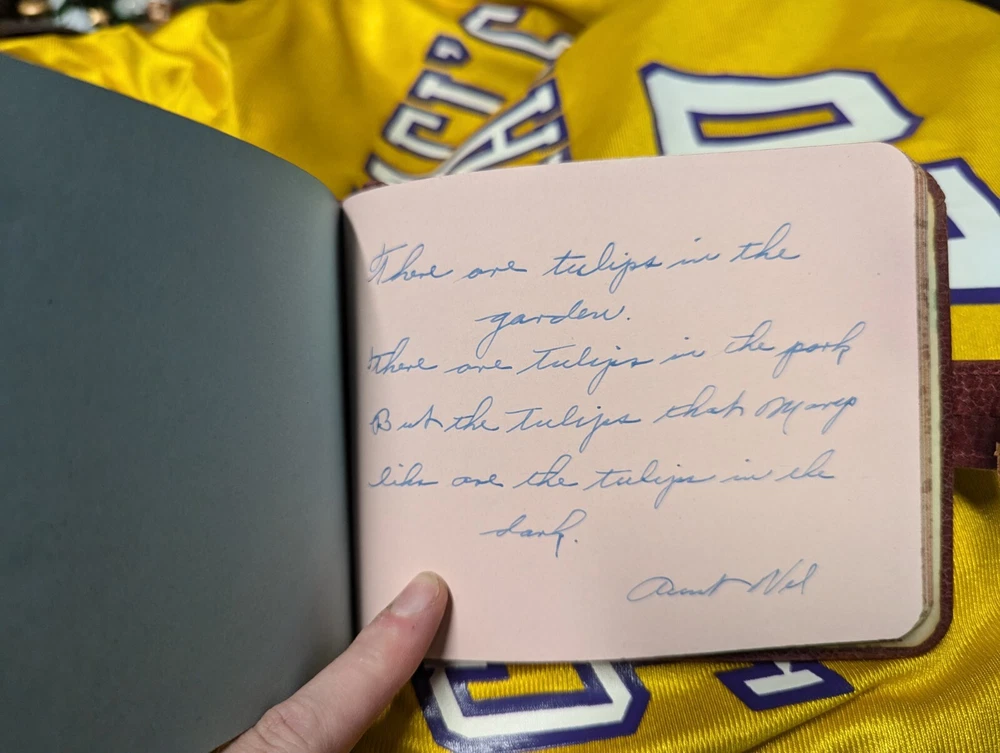 There are tulips in the
garden.
There are tulips in the park
But the tulips that Mary
like are the tulips in the
dark.
Aunt Nel